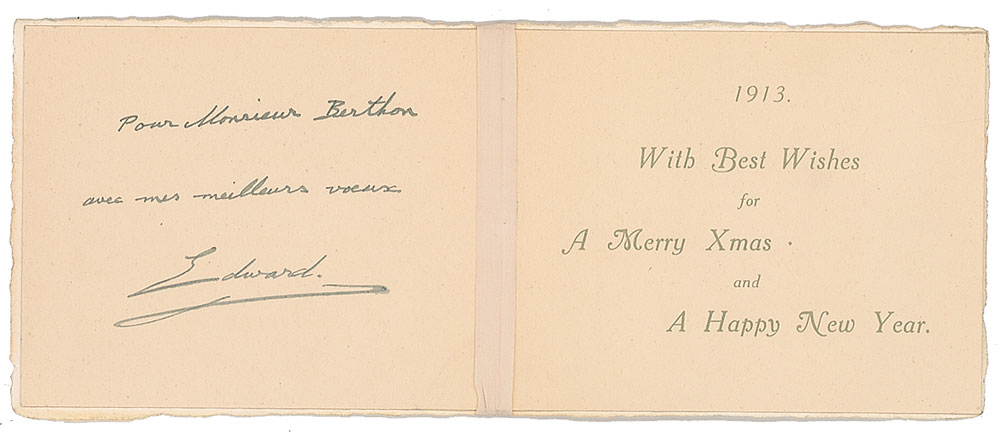 Pour Monsieur Berthon
avec mes meilleurs voeux
Edward.
1913.
With Best Wishes
for
A Merry Xmas .
and
A Happy New Year.